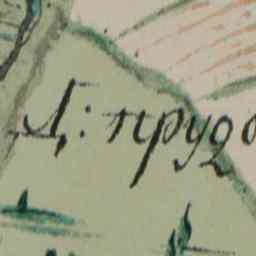 Д: пруд